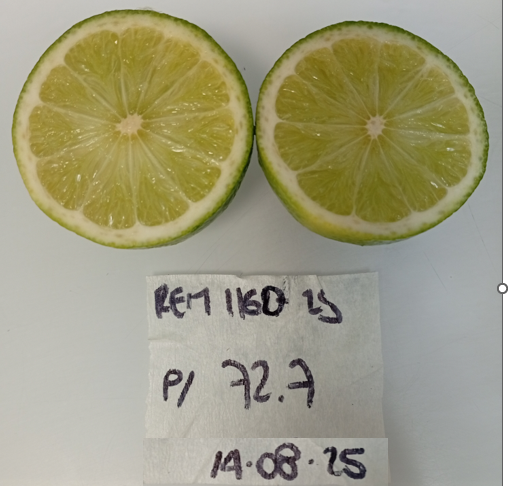 REM 1160 25
P/ 72.7
14.08.25